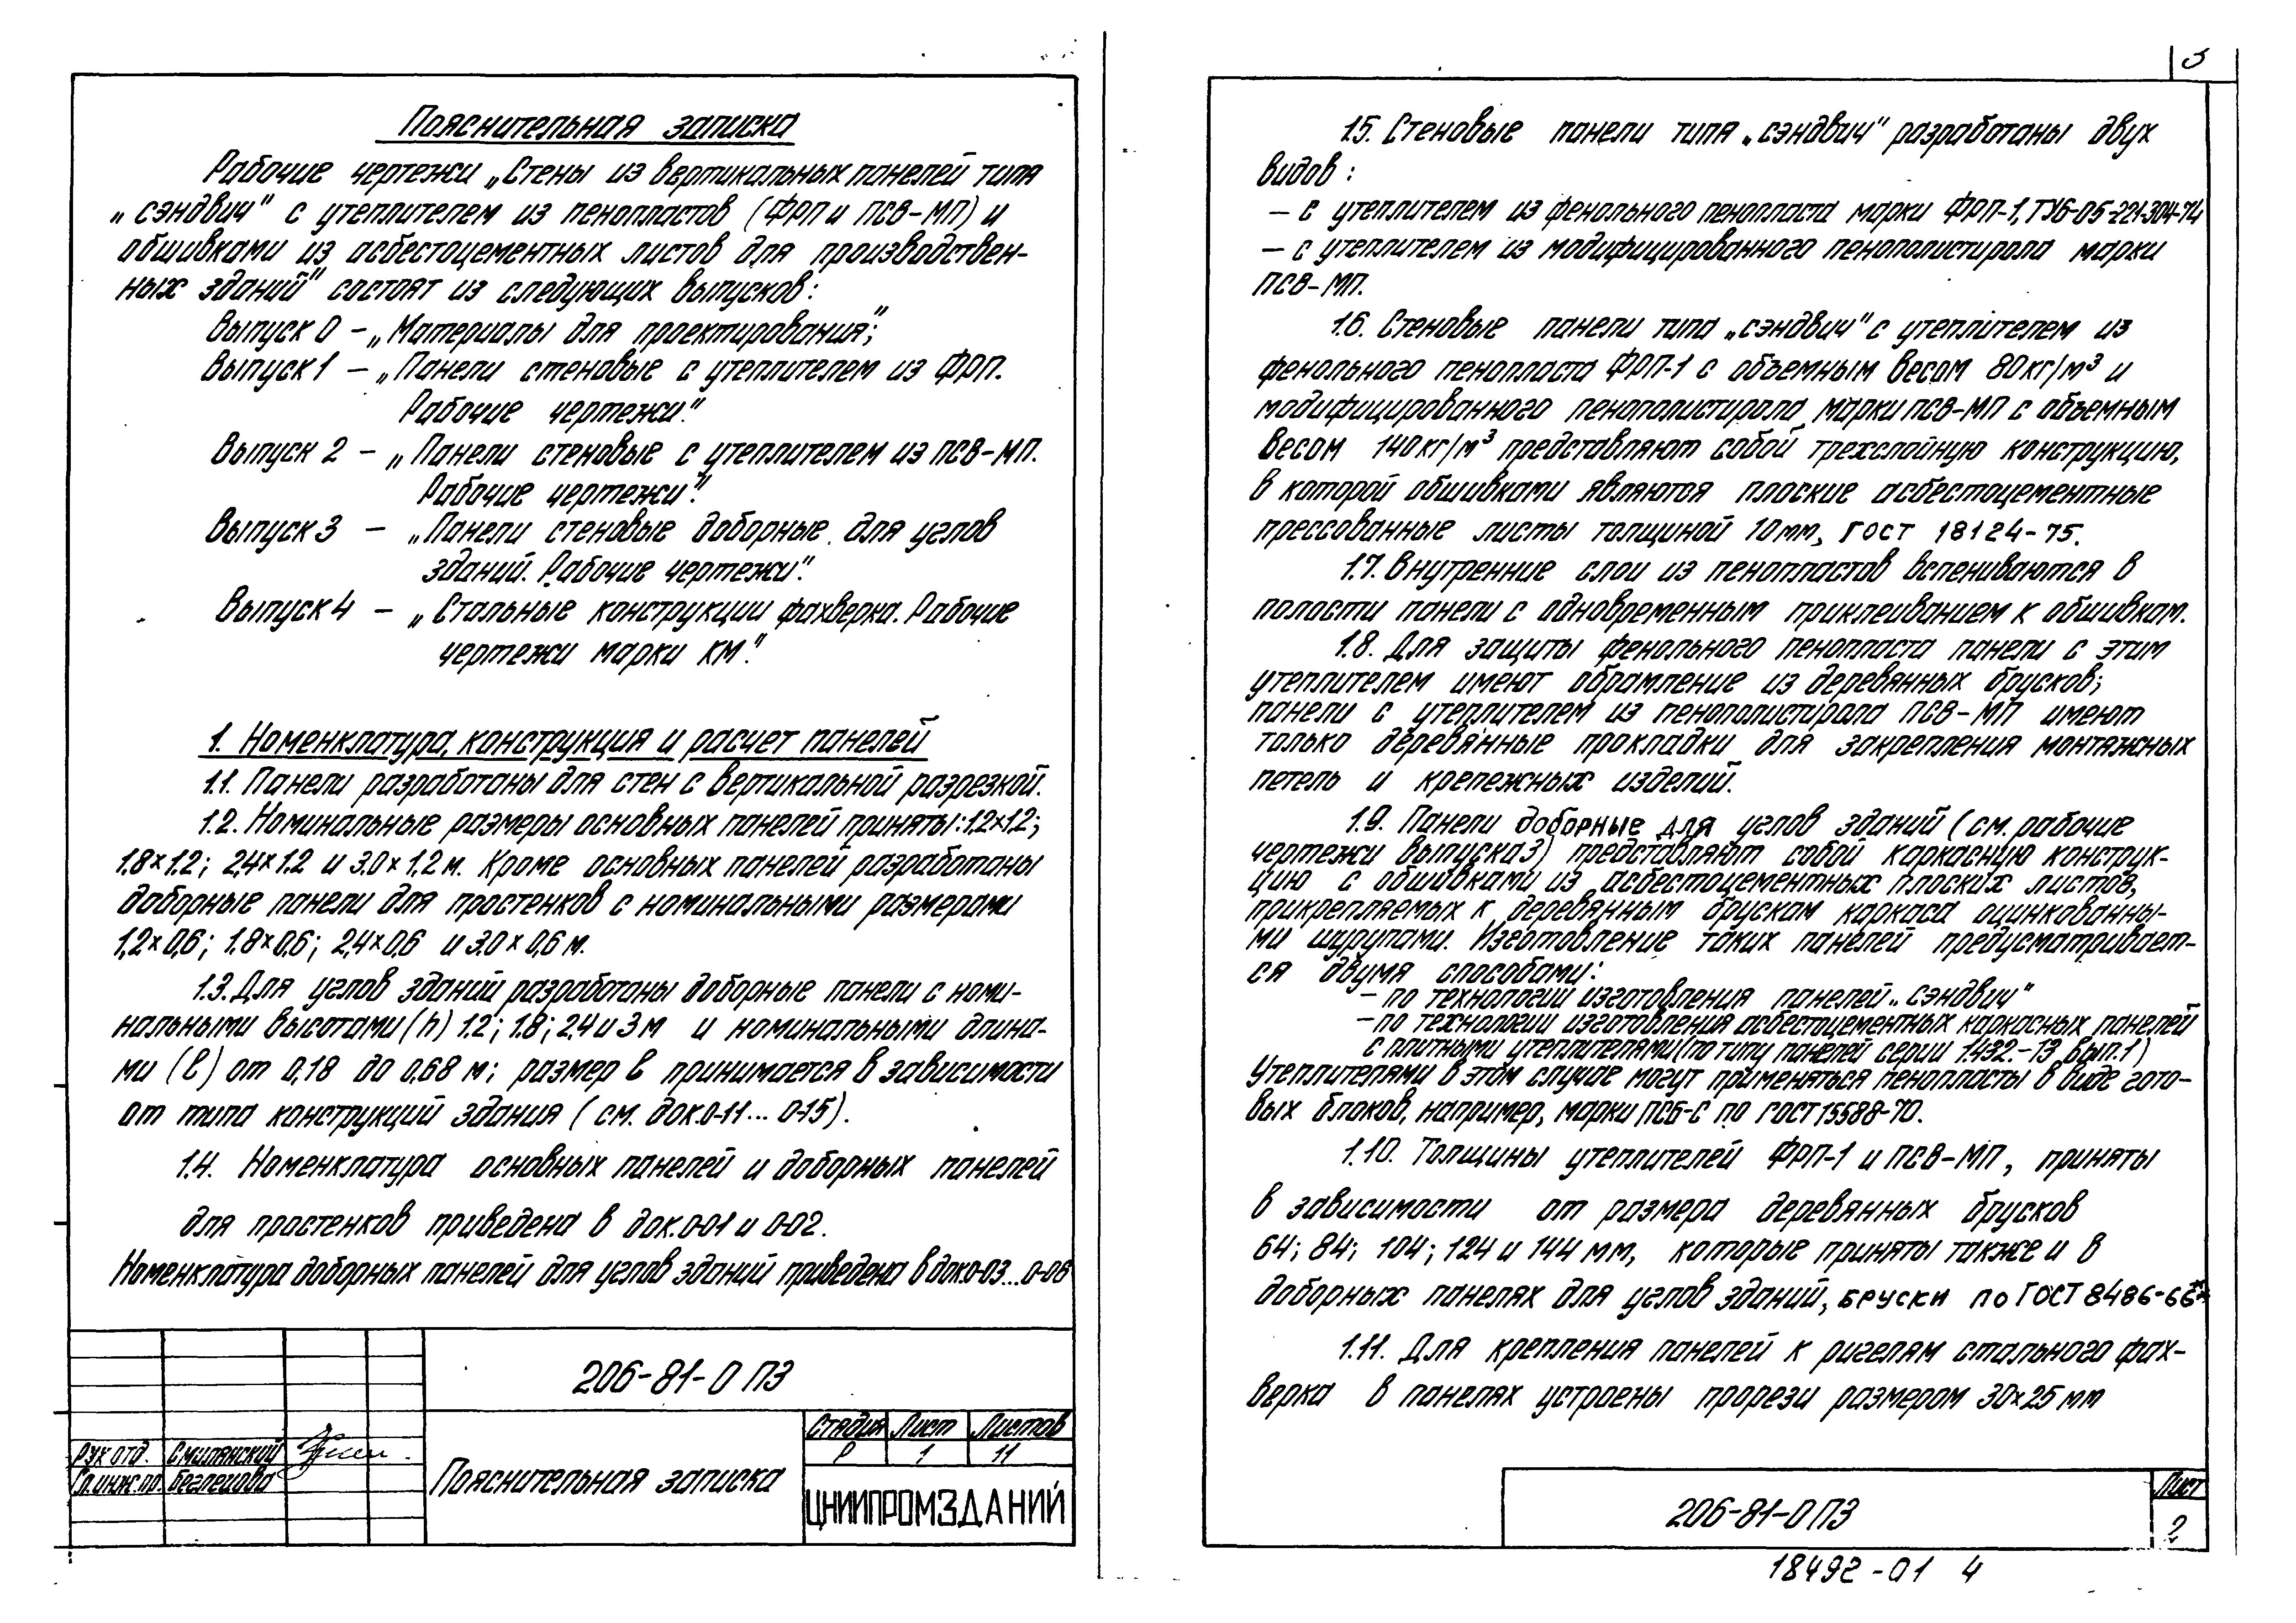 Пояснительная записка
Рабочие чертежи „Стены из вертикальных панелей типа
„сэндвич" с утеплителем из пенопластов (ФРП и ПСВ-МП) и
обшивками из асбестоцементных листов для производствен-
ных зданий" состоят из следующих выпусков:
Выпуск 0 – „Материалы для проектирования";
Выпуск 1 – „Панели стеновые с утеплителем из ФРП.
Рабочие чертежи."
Выпуск 2 – „Панели стеновые с утеплителем из ПСВ-МП.
Рабочие чертежи".
Выпуск 3 – „Панели стеновые доборные для углов
зданий. Рабочие чертежи".
Выпуск 4 – „Стальные конструкции фахверка. Рабочие
чертежи марки КМ".
1. Номенклатура, конструкция и расчет панелей
1.1. Панели разработаны для стен с вертикальной разрезкой.
1.2. Номинальные размеры основных панелей приняты: 1,2×1,2;
1.8×1.2; 2,4×1.2 и 3.0×1,2 м. Кроме основных панелей разработаны
доборные панели для простенков с номинальными размерами
1,2×0,6; 1.8×0,6; 2,4×0,6 и 3.0×0,6 м.
1.3. Для углов зданий разработаны доборные панели с номи-
нальными высотами (h) 1.2; 1,8; 2,4 и 3 м и номинальными длина-
ми (ℓ) от 0,18 до 0,68 м; размер ℓ принимается в зависимости
от типа конструкций здания (см. док.0-11... 0-15).
1.4. Номенклатура основных панелей и доборных панелей
для простенков приведена в док.0-01 и 0-02.
Номенклатура доборных панелей для углов зданий приведена в док.0-03...0-06
206-81-0 ПЗ
Стадия Лист Листов
Р 1 11
Рук отд. Смилянский
Гл.инж.пр.
Пояснительная записка
ЦНИИПРОМЗДАНИЙ
3
1.5. Стеновые панели типа „сэндвич" разработаны двух
видов:
– с утеплителем из фенольного пенопласта марки ФРП-1, ТУ6-05-221-304-74
– с утеплителем из модифицированного пенополистирола марки
ПСВ-МП.
1.6. Стеновые панели типа „сэндвич" с утеплителем из
фенольного пенопласта ФРП-1 с объемным весом 80 кг/м³ и
модифицированного пенополистирола марки ПСВ-МП с объемным
весом 140 кг/м³ представляют собой трехслойную конструкцию,
в которой обшивками являются плоские асбестоцементные
прессованные листы толщиной 10 мм, ГОСТ 18124-75.
1.7. Внутренние слои из пенопластов вспениваются в
полости панели с одновременным приклеиванием к обшивкам.
1.8. Для защиты фенольного пенопласта панели с этим
утеплителем имеют обрамление из деревянных брусков;
панели с утеплителем из пенополистирола ПСВ-МП имеют
только деревянные прокладки для закрепления монтажных
петель и крепежных изделий.
1.9. Панели доборные для углов зданий (см. рабочие
чертежи выпуска 3) представляют собой каркасную конструк-
цию с обшивками из асбестоцементных плоских листов,
прикрепляемых к деревянным брускам каркаса оцинкованны-
ми шурупами. Изготовление таких панелей предусматривает-
ся двумя способами:
– по технологии изготовления панелей „сэндвич"
– по технологии изготовления асбестоцементных каркасных панелей
с плитными утеплителями (по типу панелей серии 1.432.-13 вып.1)
Утеплителями в этом случае могут применяться пенопласты в виде гото-
вых блоков, например, марки ПСБ-С по ГОСТ 15588-70.
1.10. Толщины утеплителей ФРП-1 и ПСВ-МП, приняты
в зависимости от размера деревянных брусков
64; 84; 104; 124 и 144 мм, которые приняты также и в
доборных панелях для углов зданий, бруски по ГОСТ 8486-66*
1.11. Для крепления панелей к ригелям стального фах-
верка в панелях устроены прорези размером 30×25 мм
206-81-0 ПЗ
Лист
2
18492-01 4